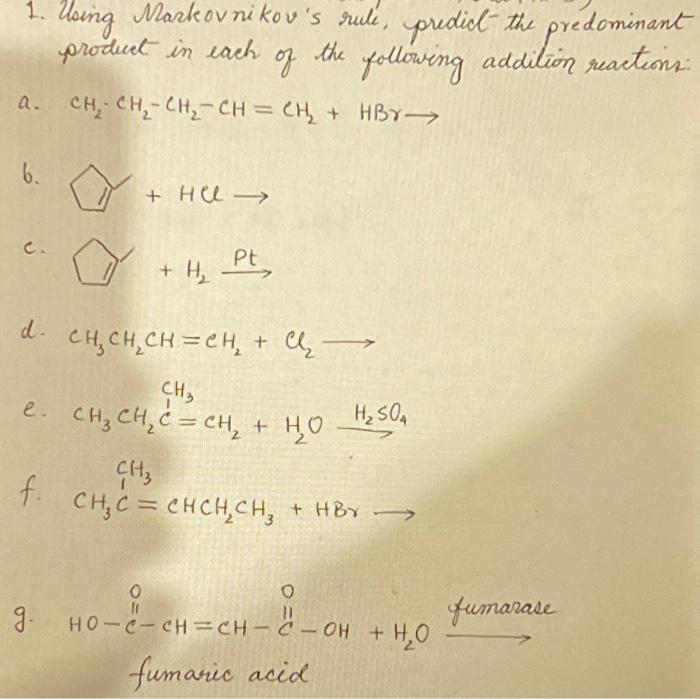 1. Using Markovnikov's rule, predict the predominant
product in each of the following addition reactions:
a. CH₂-CH₂-CH₂-CH=CH₂ + HBr→
b. + HCl →
c. + H₂ Pt→
d. CH₃CH₂CH=CH₂ + Cl₂ →
CH₃
e. CH₃CH₂C=CH₂ + H₂O H₂SO₄→
CH₃
f. CH₃C=CHCH₂CH₃ + HBr →
O O fumarase
g. HO-C-CH=CH-C-OH + H₂O →
fumaric acid